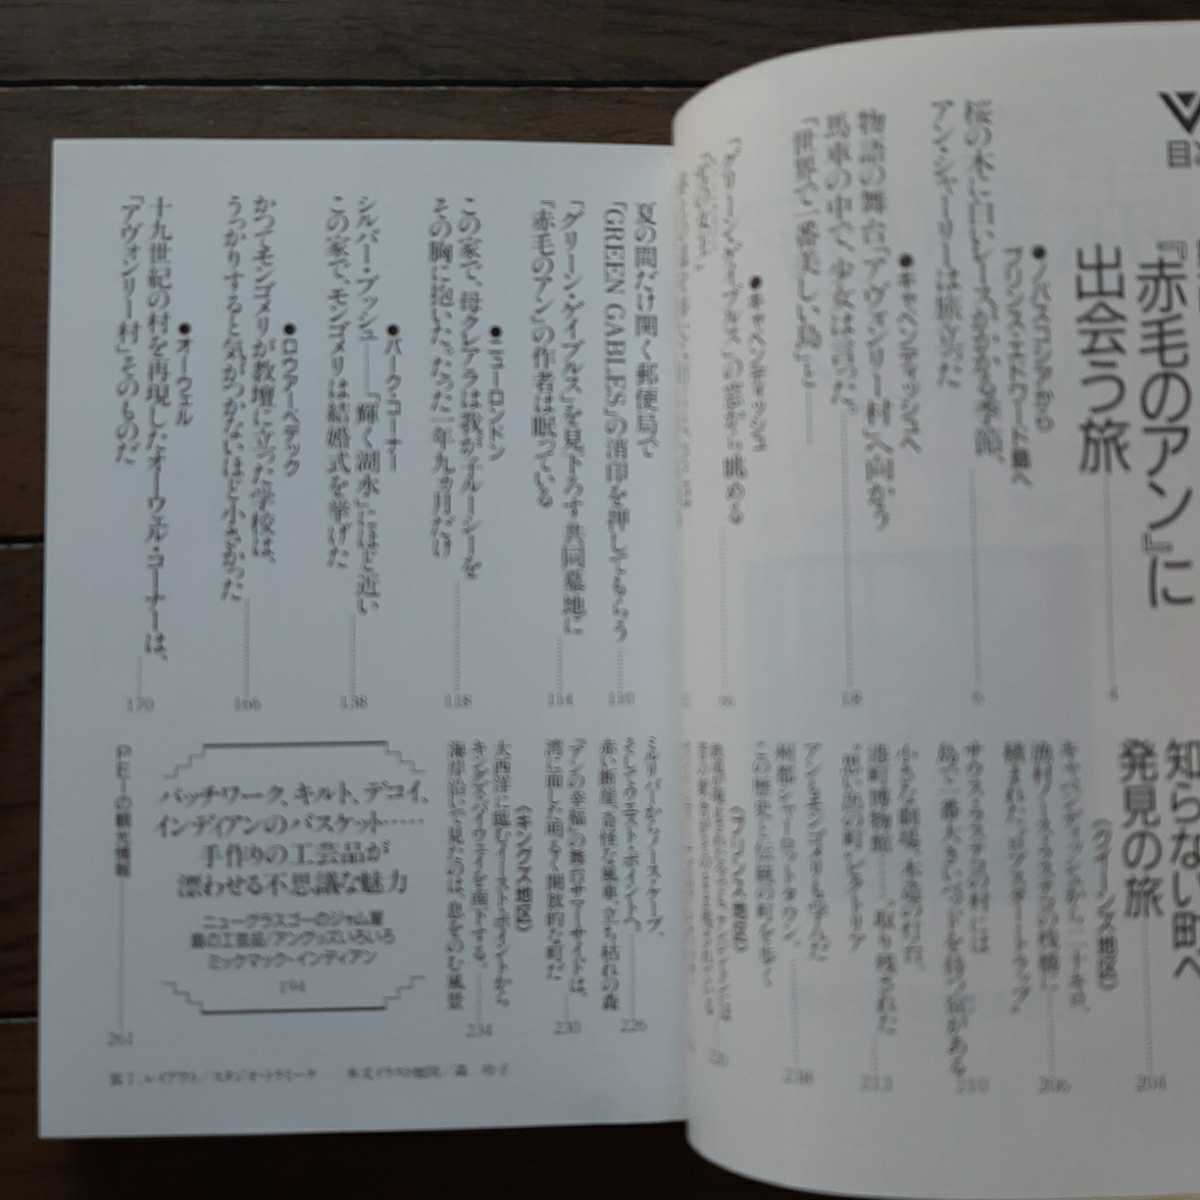 目次
『赤毛のアン』に
出会う旅
4
●ノバスコシアから
プリンス・エドワード島へ
桜の木に白いレースがかかる季節、
アン・シャーリーは旅立った
6
●キャベンディッシュへ
物語の舞台「アヴォンリー村」へ向かう
馬車の中で、少女は言った。
「世界で一番美しい島」と
18
●キャベンディッシュ
「グリーン・ゲイブルス」の窓から眺める
夏の間だけ開く郵便局で
「GREEN GABLES」の消印を押してもらう
110
「グリーン・ゲイブルス」を見下ろす共同墓地に
『赤毛のアン』の作者は眠っている
114
●ニューロンドン
この家で、母クレアラは我が子ルーシーを
その胸に抱いた。たった一年九ヵ月だけ
118
●パーク・コーナー
シルバー・ブッシュ――「輝く湖水」にほど近い
この家で、モンゴメリは結婚式を挙げた
138
●ロウアーベデック
かつてモンゴメリが教壇に立った学校は、
うっかりすると気がつかないほど小さかった
166
●オーウェル
十九世紀の村を再現したオーウェル・コーナーは、
「アヴォンリー村」そのものだ
170
知らない町へ
発見の旅
204
〈クイーンズ地区〉
キャベンディッシュから二十キロ、
漁村ノースラスティコの桟橋に
積まれた“ロブスタートラップ”
206
サウス・ラスティコの村には
島で一番大きいベッドを持つ宿がある
210
小さな劇場、木造の灯台、
港町博物館――取り残された
“思い出の町”ビクトリア
213
アンもモンゴメリも学んだ
州都シャーロットタウン。
この歴史と伝統の町を歩く
〈プリンス地区〉
ミルリバーからノース・ケープ、
そしてウエスト・ポイントへ。
赤い断崖、奇怪な風車、立ち枯れの森
226
『アンの幸福』の舞台サマーサイドは、
湾に面した明るく開放的な町だ
230
〈キングズ地区〉
大西洋に臨むイースト・ポイントから
キングズ・バイウェイを南下する。
海岸沿いで見たのは、息をのむ風景
234
パッチワーク、キルト、デコイ、
インディアンのバスケット……
手作りの工芸品が
漂わせる不思議な魅力
ニューグラスゴーのジャム屋
島の工芸品/アングッズいろいろ
ミックマック・インディアン
194
P.E.Iの観光情報
261